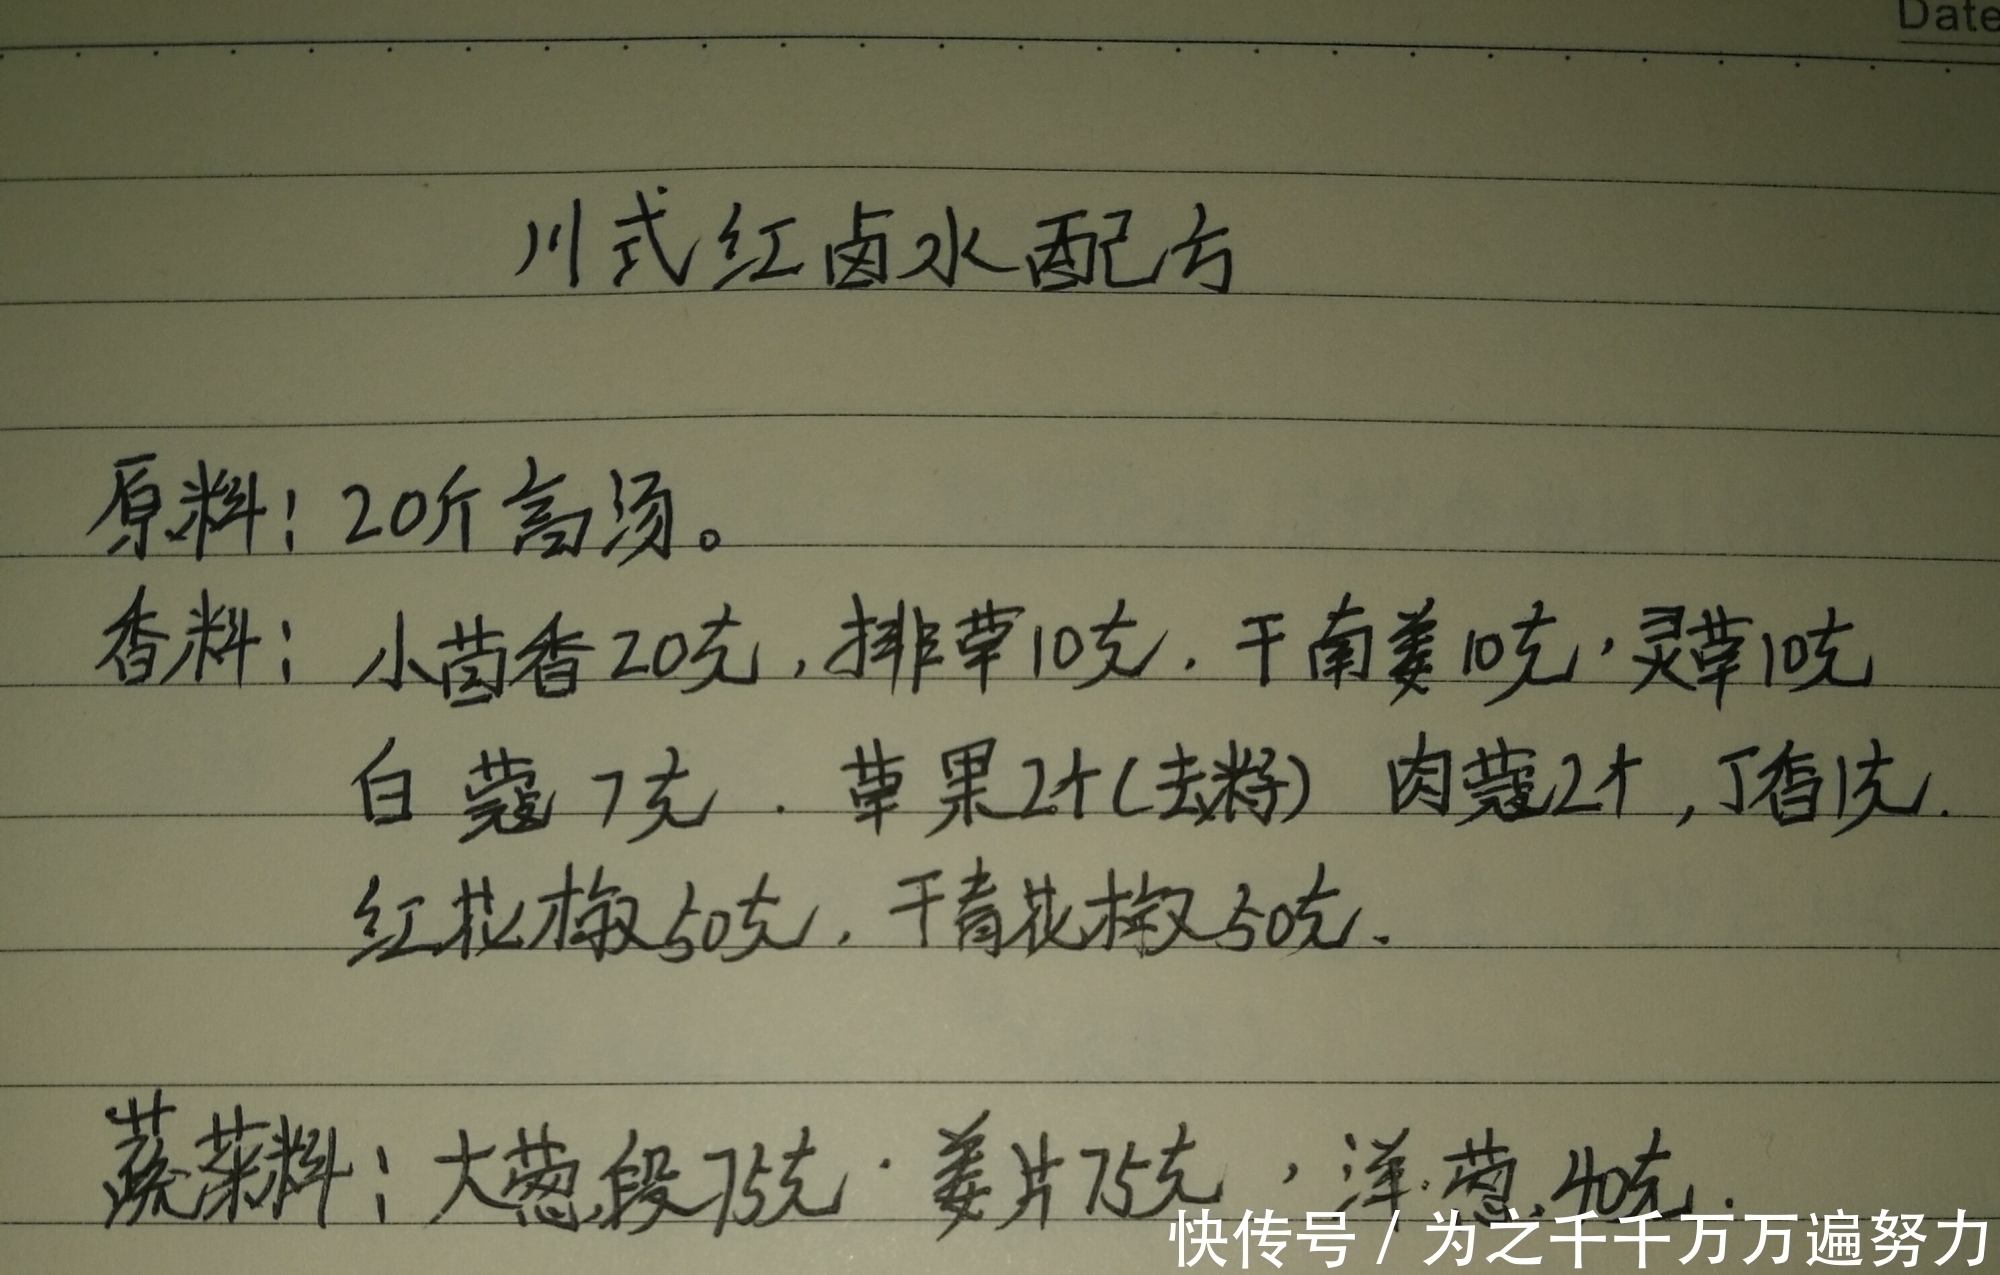 Date
川式红卤水配方
原料：20斤高汤。
香料：小茴香20克，排草10克．干南姜10克，灵草10克
白蔻7克．草果2个(去籽) 肉蔻2个，丁香1克．
红花椒50克，干青花椒50克．
蔬菜料：大葱段75克．姜片75克，洋葱40克．
快传号 / 为之千千万万遍努力